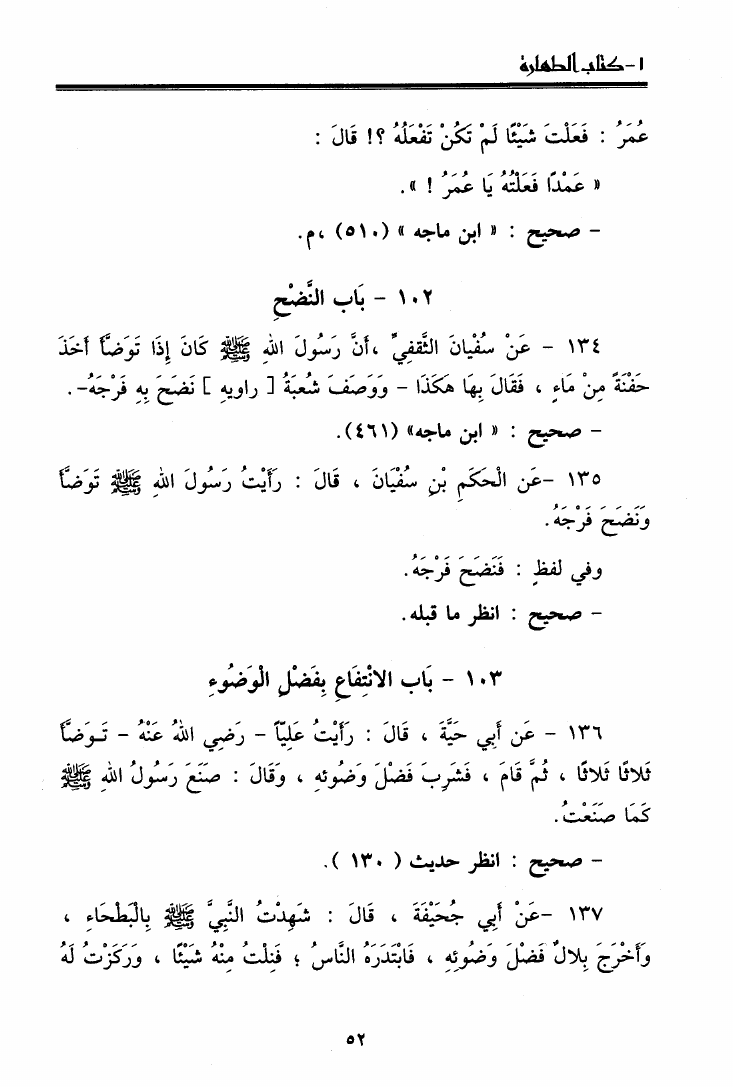 ١- كتاب الطهارة
عُمَرُ : فَعَلْتَ شَيْئًا لَمْ تَكُنْ تَفْعَلُهُ ؟! قَالَ :
« عَمْدًا فَعَلْتُهُ يَا عُمَرُ ! ».
- صحيح : « ابن ماجه » (٥١٠) ،م.
١٠٢ - بَاب النَّضْحِ
١٣٤ - عَنْ سُفْيَانَ الثَّقفِيِّ ،أَنَّ رَسُولَ اللهِ ﷺ كَانَ إِذَا تَوَضَّأَ أَخَذَ
حَفْنَةً مِنْ مَاءٍ ، فَقَالَ بِهَا هَكَذَا - وَوَصَفَ شُعْبَةُ [ راويهِ ] نَضَحَ بِهِ فَرْجَهُ-.
- صحيح : « ابن ماجه» (٤٦١).
١٣٥ -عَن الْحَكَمِ بْنِ سُفْيَانَ ، قَالَ : رَأَيْتُ رَسُولَ اللهِ ﷺ تَوَضَّأَ
وَنَضَحَ فَرْجَهُ.
وفي لفظٍ : فَنَضَحَ فَرْجَهُ.
- صحيح : انظر ما قبله.
١٠٣ - بَاب الانْتِفَاعِ بِفَضْلِ الْوَضُوءِ
١٣٦ - عَن أَبِي حَيَّةَ ، قَالَ : رَأَيْتُ عَلِيّاً - رَضِي اللهُ عَنْهُ - تَـوَضَّأَ
ثَلاثًا ثَلاثًا ، ثُمَّ قَامَ ، فَشَرِبَ فَضْلَ وَضُوئهِ ، وَقَالَ : صَنَعَ رَسُولُ اللهِ ﷺ
كَمَا صَنَعْتُ.
- صحيح : انظر حديث ( ١٣٠ ).
١٣٧ -عَنْ أَبِي جُحَيْفَةَ ، قَالَ : شَهِدْتُ النَّبِيَّ ﷺ بِالْبَطْحَاءِ ،
وَأَخْرَجَ بِلالٌ فَضْلَ وَضُوئِهِ ، فَابْتَدَرَهُ النَّاسُ ؛ فَنِلْتُ مِنْهُ شَيْئًا ، وَرَكَزْتُ لَهُ
٥٢